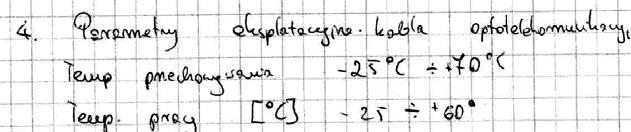 4. Parametry eksplatacyjne kabla optotelekomunikacyj
Temp przechowywania -25°C ÷ +70°C
Temp. pracy [°C] - 25 ÷ +60°